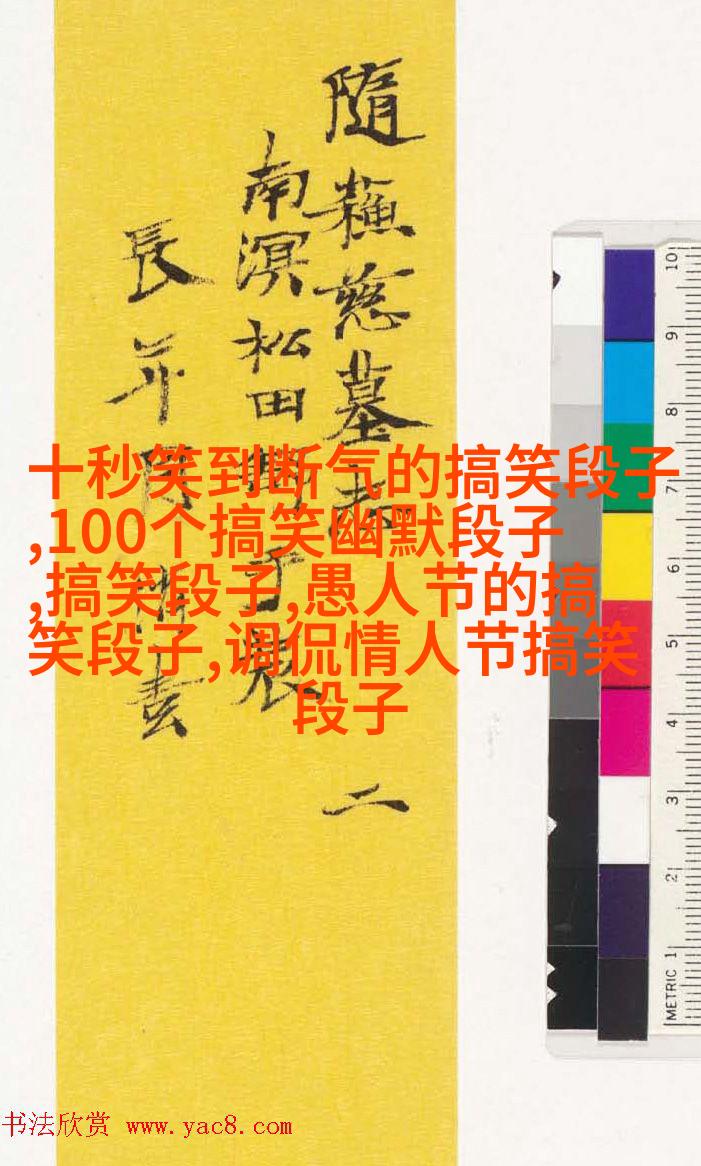 隨蘓慈墓志 二
南溟松田
長并
十秒笑到断气的搞笑段子
,100个搞笑幽默段子
,搞笑段子,愚人节的搞
笑段子,调侃情人节搞笑
段子
10
9
8
7
6
5
4
3
2
METRIC 1
书法欣赏 www.yac8.com